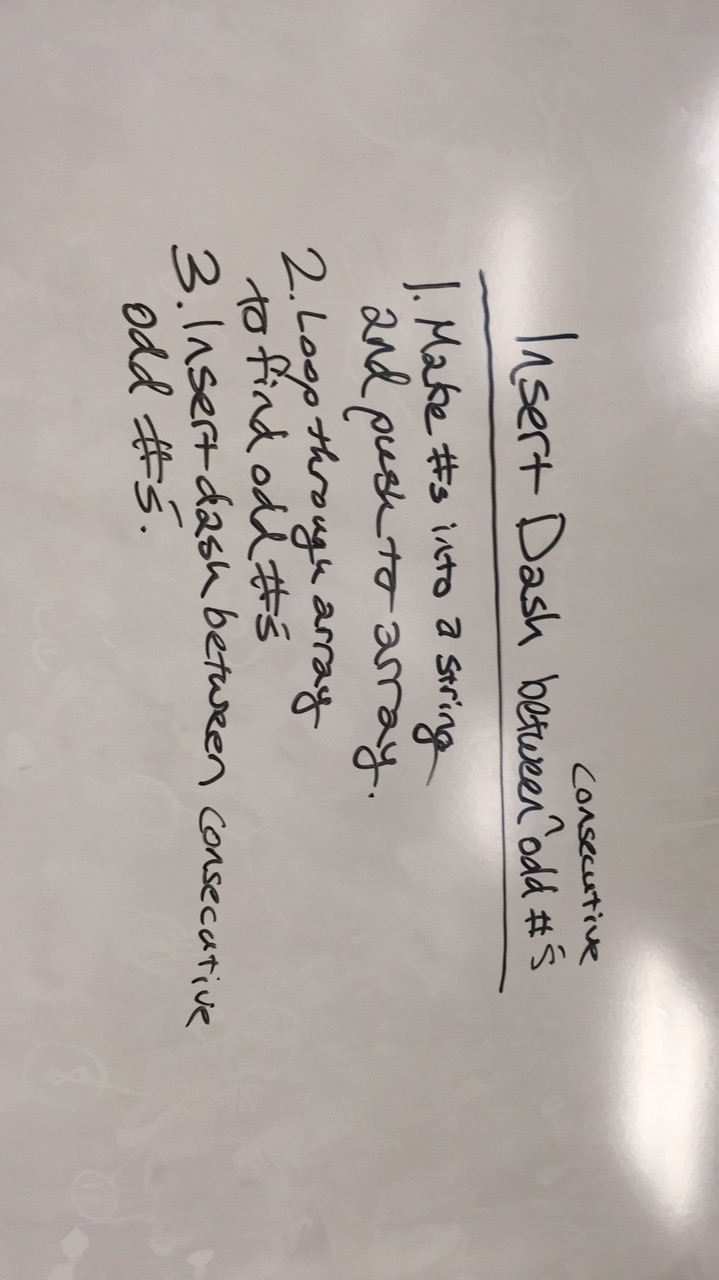 consecutive
Insert Dash between ^ odd #s
1. Make #s into a string
and push to array.
2. Loop through array
to find odd #s
3. Insert dash between consecutive
odd #s.
8
11